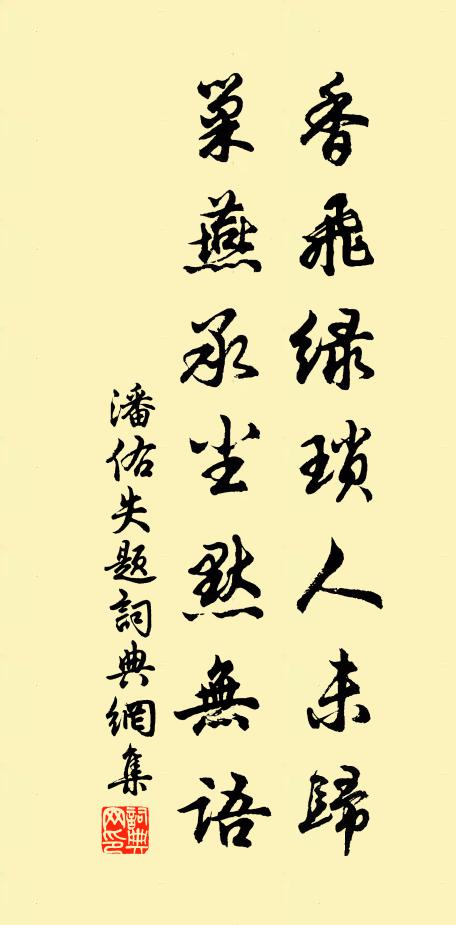 香飛綠瑣人未歸
巢燕承塵默無語
潘佑失題詞典網集
詞典网印